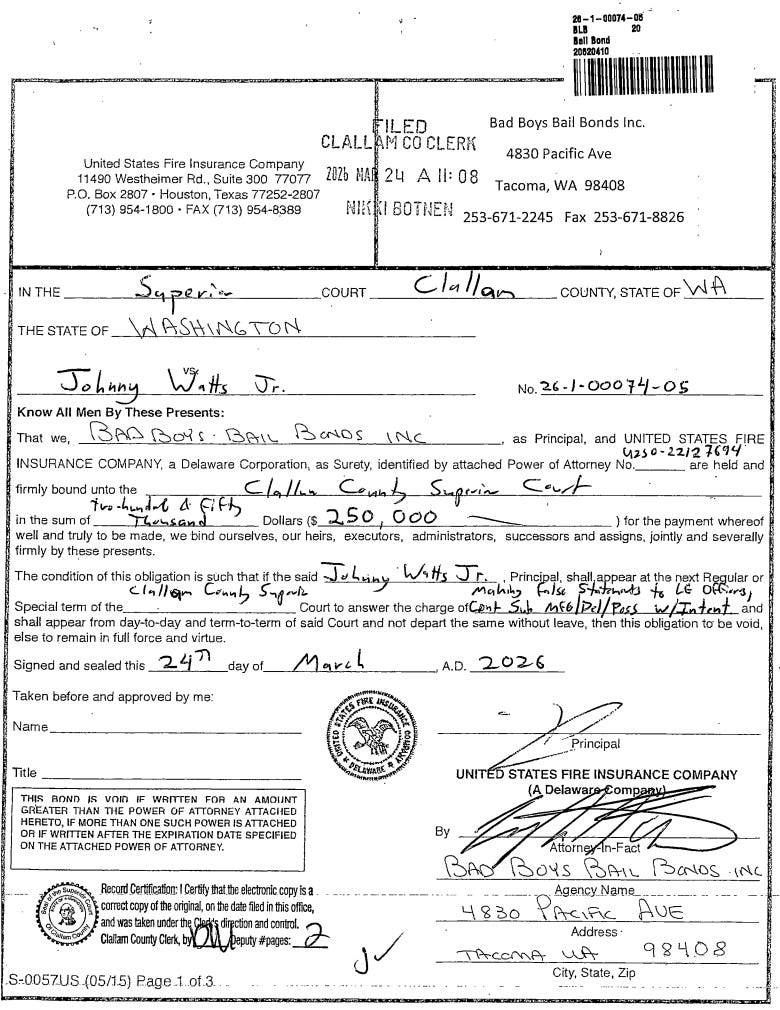 26-1-00074-05
BLB 20
Bail Bond
20620410
United States Fire Insurance Company
11490 Westheimer Rd., Suite 300 77077
P.O. Box 2807 • Houston, Texas 77252-2807
(713) 954-1800 • FAX (713) 954-8389
FILED
CLALLAM CO CLERK
2026 MAR 24 A 11: 08
NIKKI BOTNEN
Bad Boys Bail Bonds Inc.
4830 Pacific Ave
Tacoma, WA 98408
253-671-2245 Fax 253-671-8826
IN THE Superior COURT Clallam COUNTY, STATE OF WA
THE STATE OF WASHINGTON
vs.
Johnny Watts Jr. No. 26-1-00074-05
Know All Men By These Presents:
That we, BAD BOYS BAIL BONDS INC, as Principal, and UNITED STATES FIRE
U250-22127694
INSURANCE COMPANY, a Delaware Corporation, as Surety, identified by attached Power of Attorney No. are held and
firmly bound unto the Clallam County Superior Court
two-hundred & Fifty
in the sum of Thousand Dollars ($ 250,000 ) for the payment whereof
well and truly to be made, we bind ourselves, our heirs, executors, administrators, successors and assigns, jointly and severally
firmly by these presents.
The condition of this obligation is such that if the said Johnny Watts Jr., Principal, shall appear at the next Regular or
Clallam County Superior Making False Statements to LE Officers,
Special term of the Court to answer the charge of Cont Sub MFG/Del/Poss w/Intent and
shall appear from day-to-day and term-to-term of said Court and not depart the same without leave, then this obligation to be void,
else to remain in full force and virtue.
Signed and sealed this 24TH day of March, A.D. 2026
Taken before and approved by me:
Name
Title
UNITED STATES FIRE INSURANCE COMPANY
• DELAWARE •
Principal
UNITED STATES FIRE INSURANCE COMPANY
(A Delaware Company)
THIS BOND IS VOID IF WRITTEN FOR AN AMOUNT
GREATER THAN THE POWER OF ATTORNEY ATTACHED
HERETO, IF MORE THAN ONE SUCH POWER IS ATTACHED
OR IF WRITTEN AFTER THE EXPIRATION DATE SPECIFIED
ON THE ATTACHED POWER OF ATTORNEY.
By
Attorney-In-Fact
BAD BOYS BAIL BONDS INC
Agency Name
4830 PACIFIC AVE
Address
TACOMA WA 98408
City, State, Zip
Seal of the Superior Court
Of Clallam County
Record Certification: I Certify that the electronic copy is a
correct copy of the original, on the date filed in this office,
and was taken under the Clerk's direction and control.
Clallam County Clerk, by Deputy #pages: 2
S-0057US (05/15) Page 1 of 3